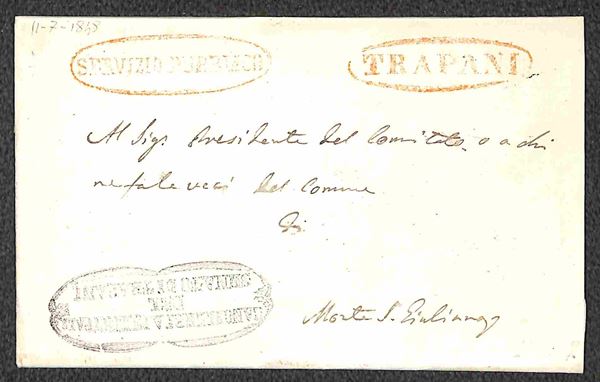 11-7-1848
SERVIZIO PUBBLICO
TRAPANI
Al Sig. Presidente del Comitato o a chi
ne fa le veci del Comune
di
Monte S. Giuliano